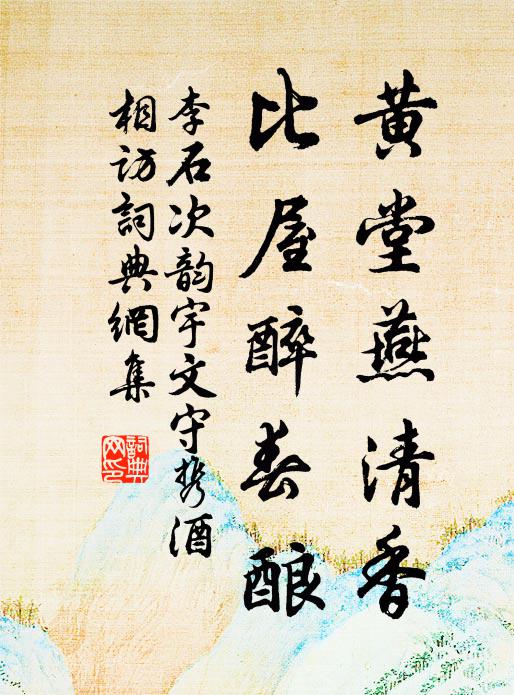 黄堂燕清香
比屋醉春酿
李石次韵宇文守携酒
相访詞典網集
詞典网印